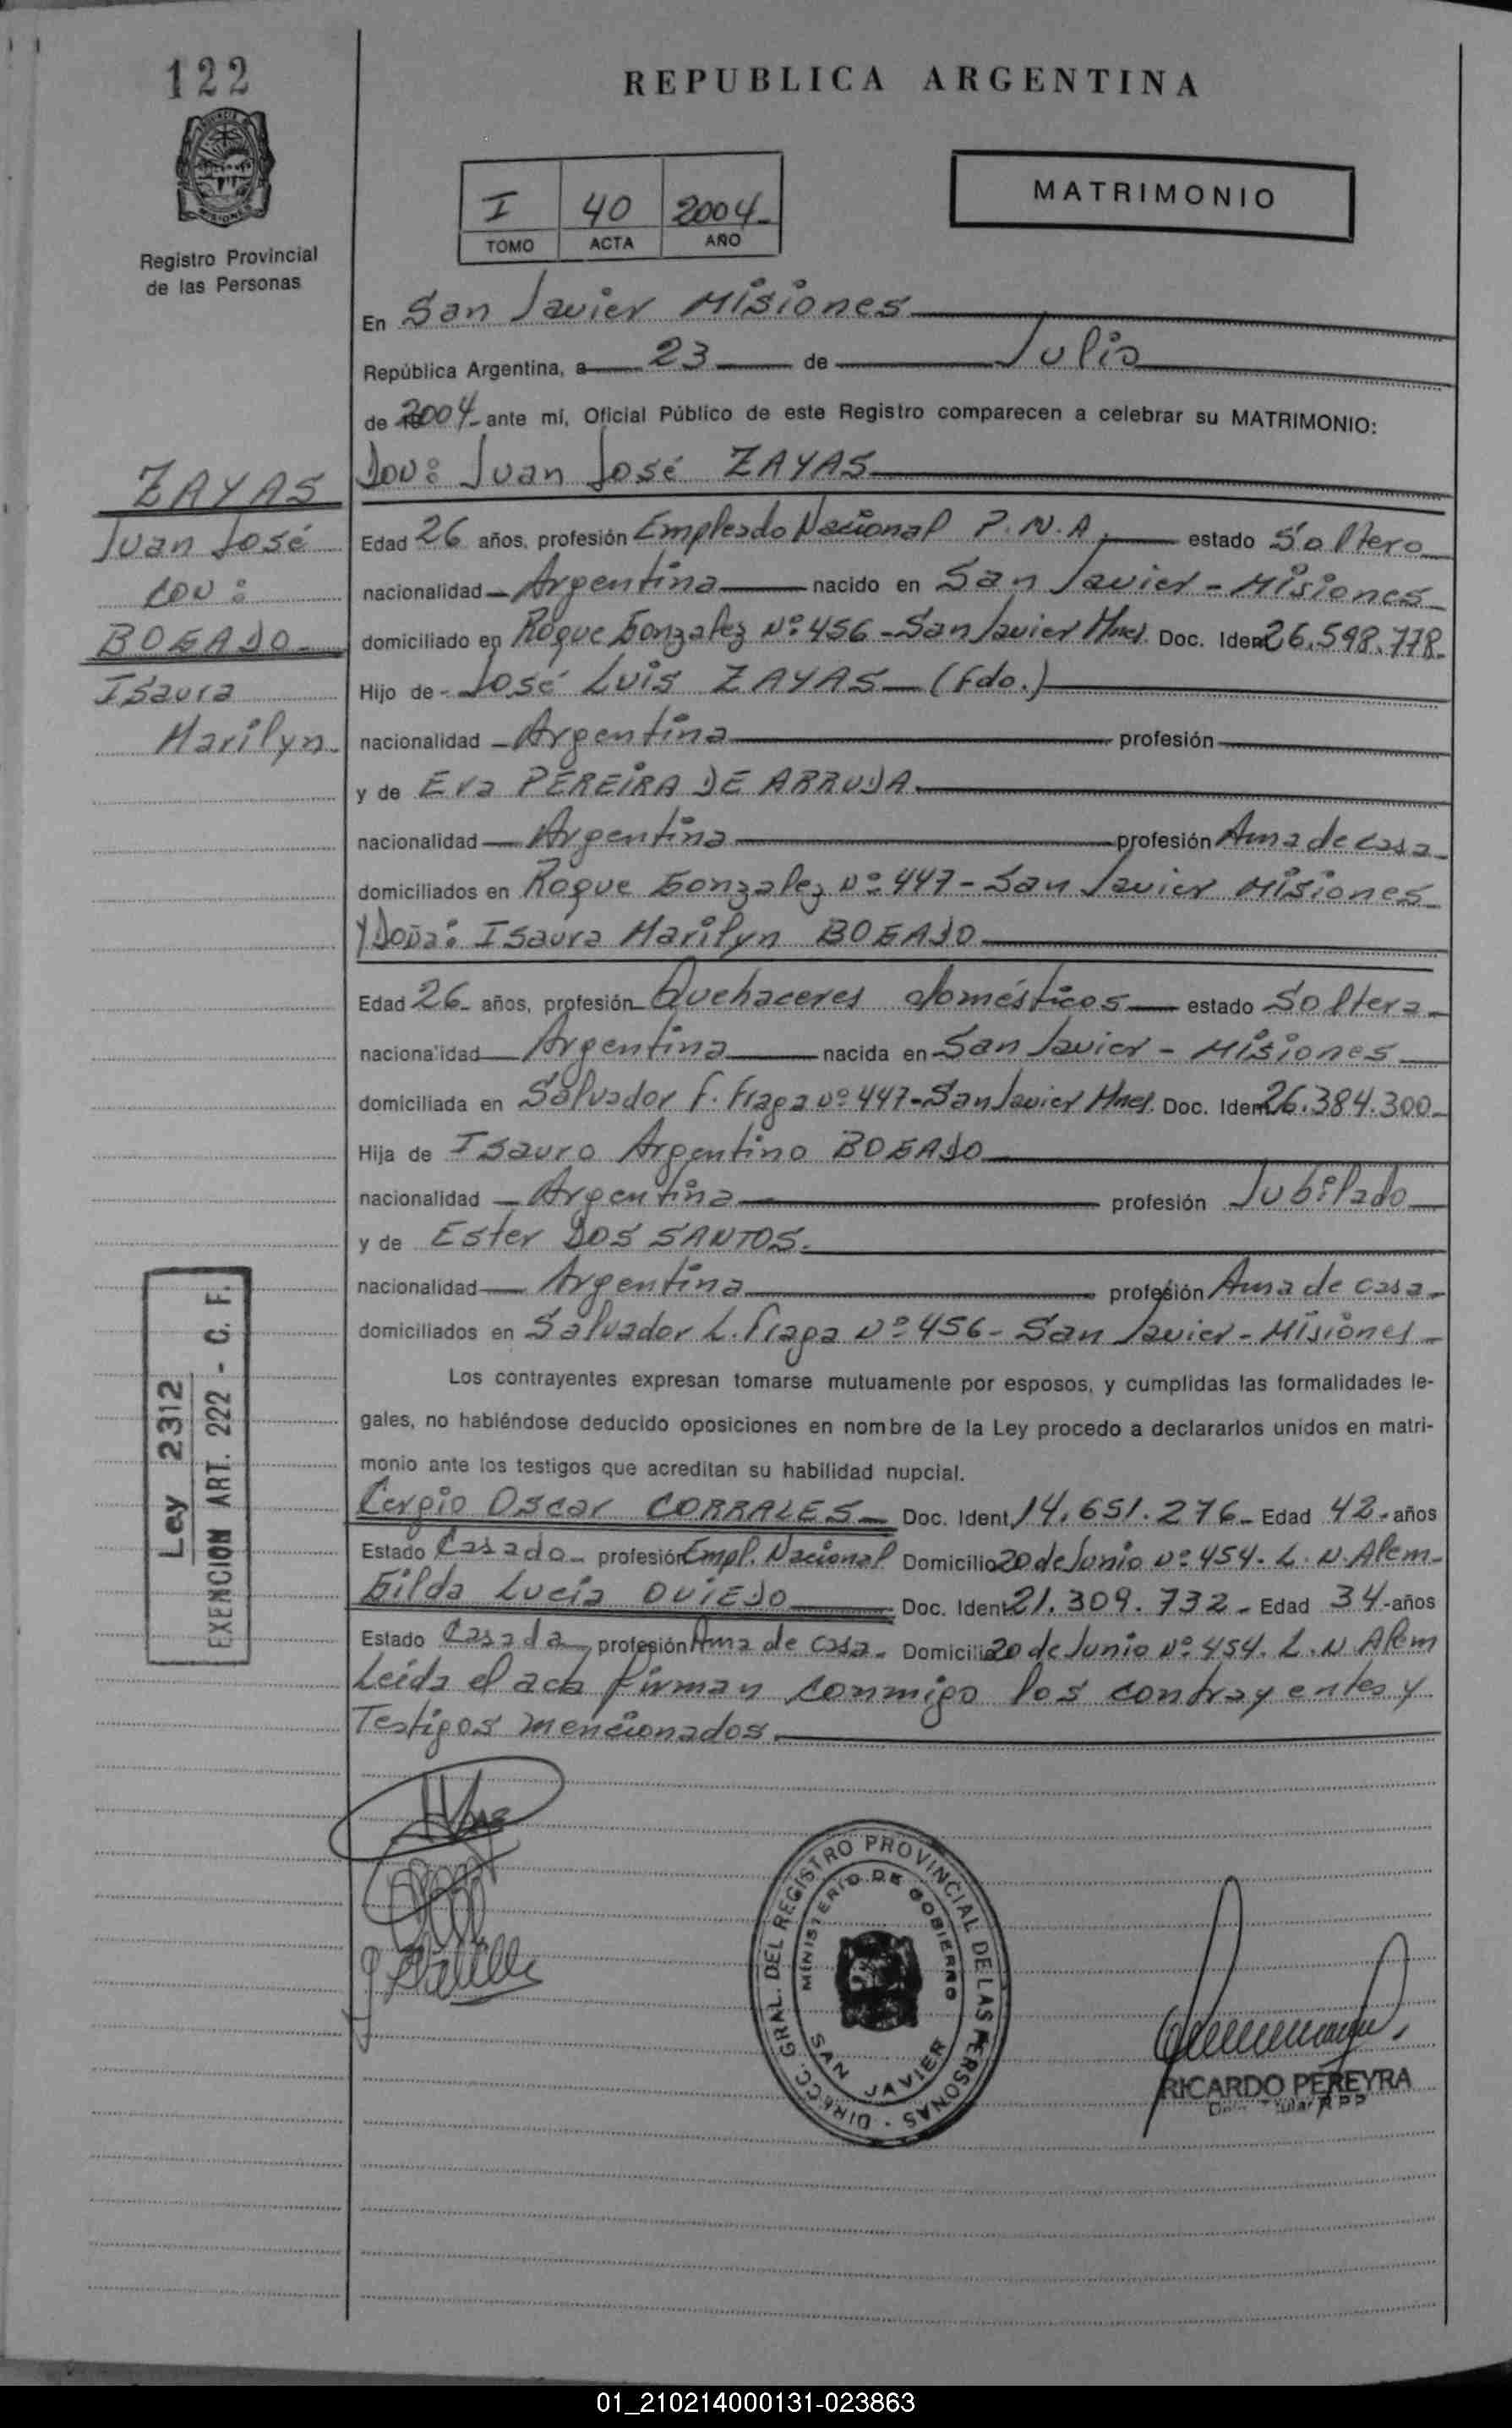 122
REPUBLICA ARGENTINA
PROVINCIA DE
MISIONES
Registro Provincial
de las Personas
I 40 2004-
TOMO ACTA AÑO
MATRIMONIO
En San Javier Misiones
República Argentina, a 23 de Julio
de 2004- ante mí, Oficial Público de este Registro comparecen a celebrar su MATRIMONIO:
Don: Juan José ZAYAS
ZAYAS
Juan José
con:
BOGADO
Isaura
Marilyn
Edad 26 años, profesión Empleado Nacional P.N.A. estado Soltero
nacionalidad Argentina nacido en San Javier - Misiones
domiciliado en Roque Gonzalez Nº 456 - San Javier Mnes. Doc. Iden 26.598.778.
Hijo de José Luis ZAYAS (fdo.)
nacionalidad Argentina profesión
y de Eva PEREIRA DE ARRUDA
nacionalidad Argentina profesión Ama de casa
domiciliados en Roque Gonzalez Nº 447 - San Javier Misiones
Y Doña: Isaura Marilyn BOGADO
Edad 26 años, profesión Quehaceres domésticos estado Soltera
nacionalidad Argentina nacida en San Javier - Misiones
domiciliada en Salvador F. Fraga Nº 447 - San Javier Mnes. Doc. Ident 26.384.300
Hija de Isauro Argentino BOGADO
nacionalidad Argentina profesión Jubilado
y de Ester DOS SANTOS.
nacionalidad Argentina profesión Ama de casa
domiciliados en Salvador L. Fraga Nº 456 - San Javier - Misiones
Los contrayentes expresan tomarse mutuamente por esposos, y cumplidas las formalidades le-
gales, no habiéndose deducido oposiciones en nombre de la Ley procedo a declararlos unidos en matri-
monio ante los testigos que acreditan su habilidad nupcial.
Cergio Oscar CORRALES Doc. Ident. 14.651.276 Edad 42 años
Estado Casado profesión Empl. Nacional Domicilio 20 de Junio Nº 454. L. N. Alem
Gilda Lucía OVIEDO Doc. Ident 21.309.732 Edad 34 años
Estado Casada profesión Ama de casa Domicilio 20 de Junio Nº 454. L. N Alem
Leída el acta firman conmigo los contrayentes y
Testigos mencionados
Ley 2312
EXENCION ART. 222 - C. F.
DIRECC. GRAL. DEL REGISTRO PROVINCIAL DE LAS PERSONAS
MINISTERIO DE GOBIERNO
SAN JAVIER
RICARDO PEREYRA
01_210214000131-023863